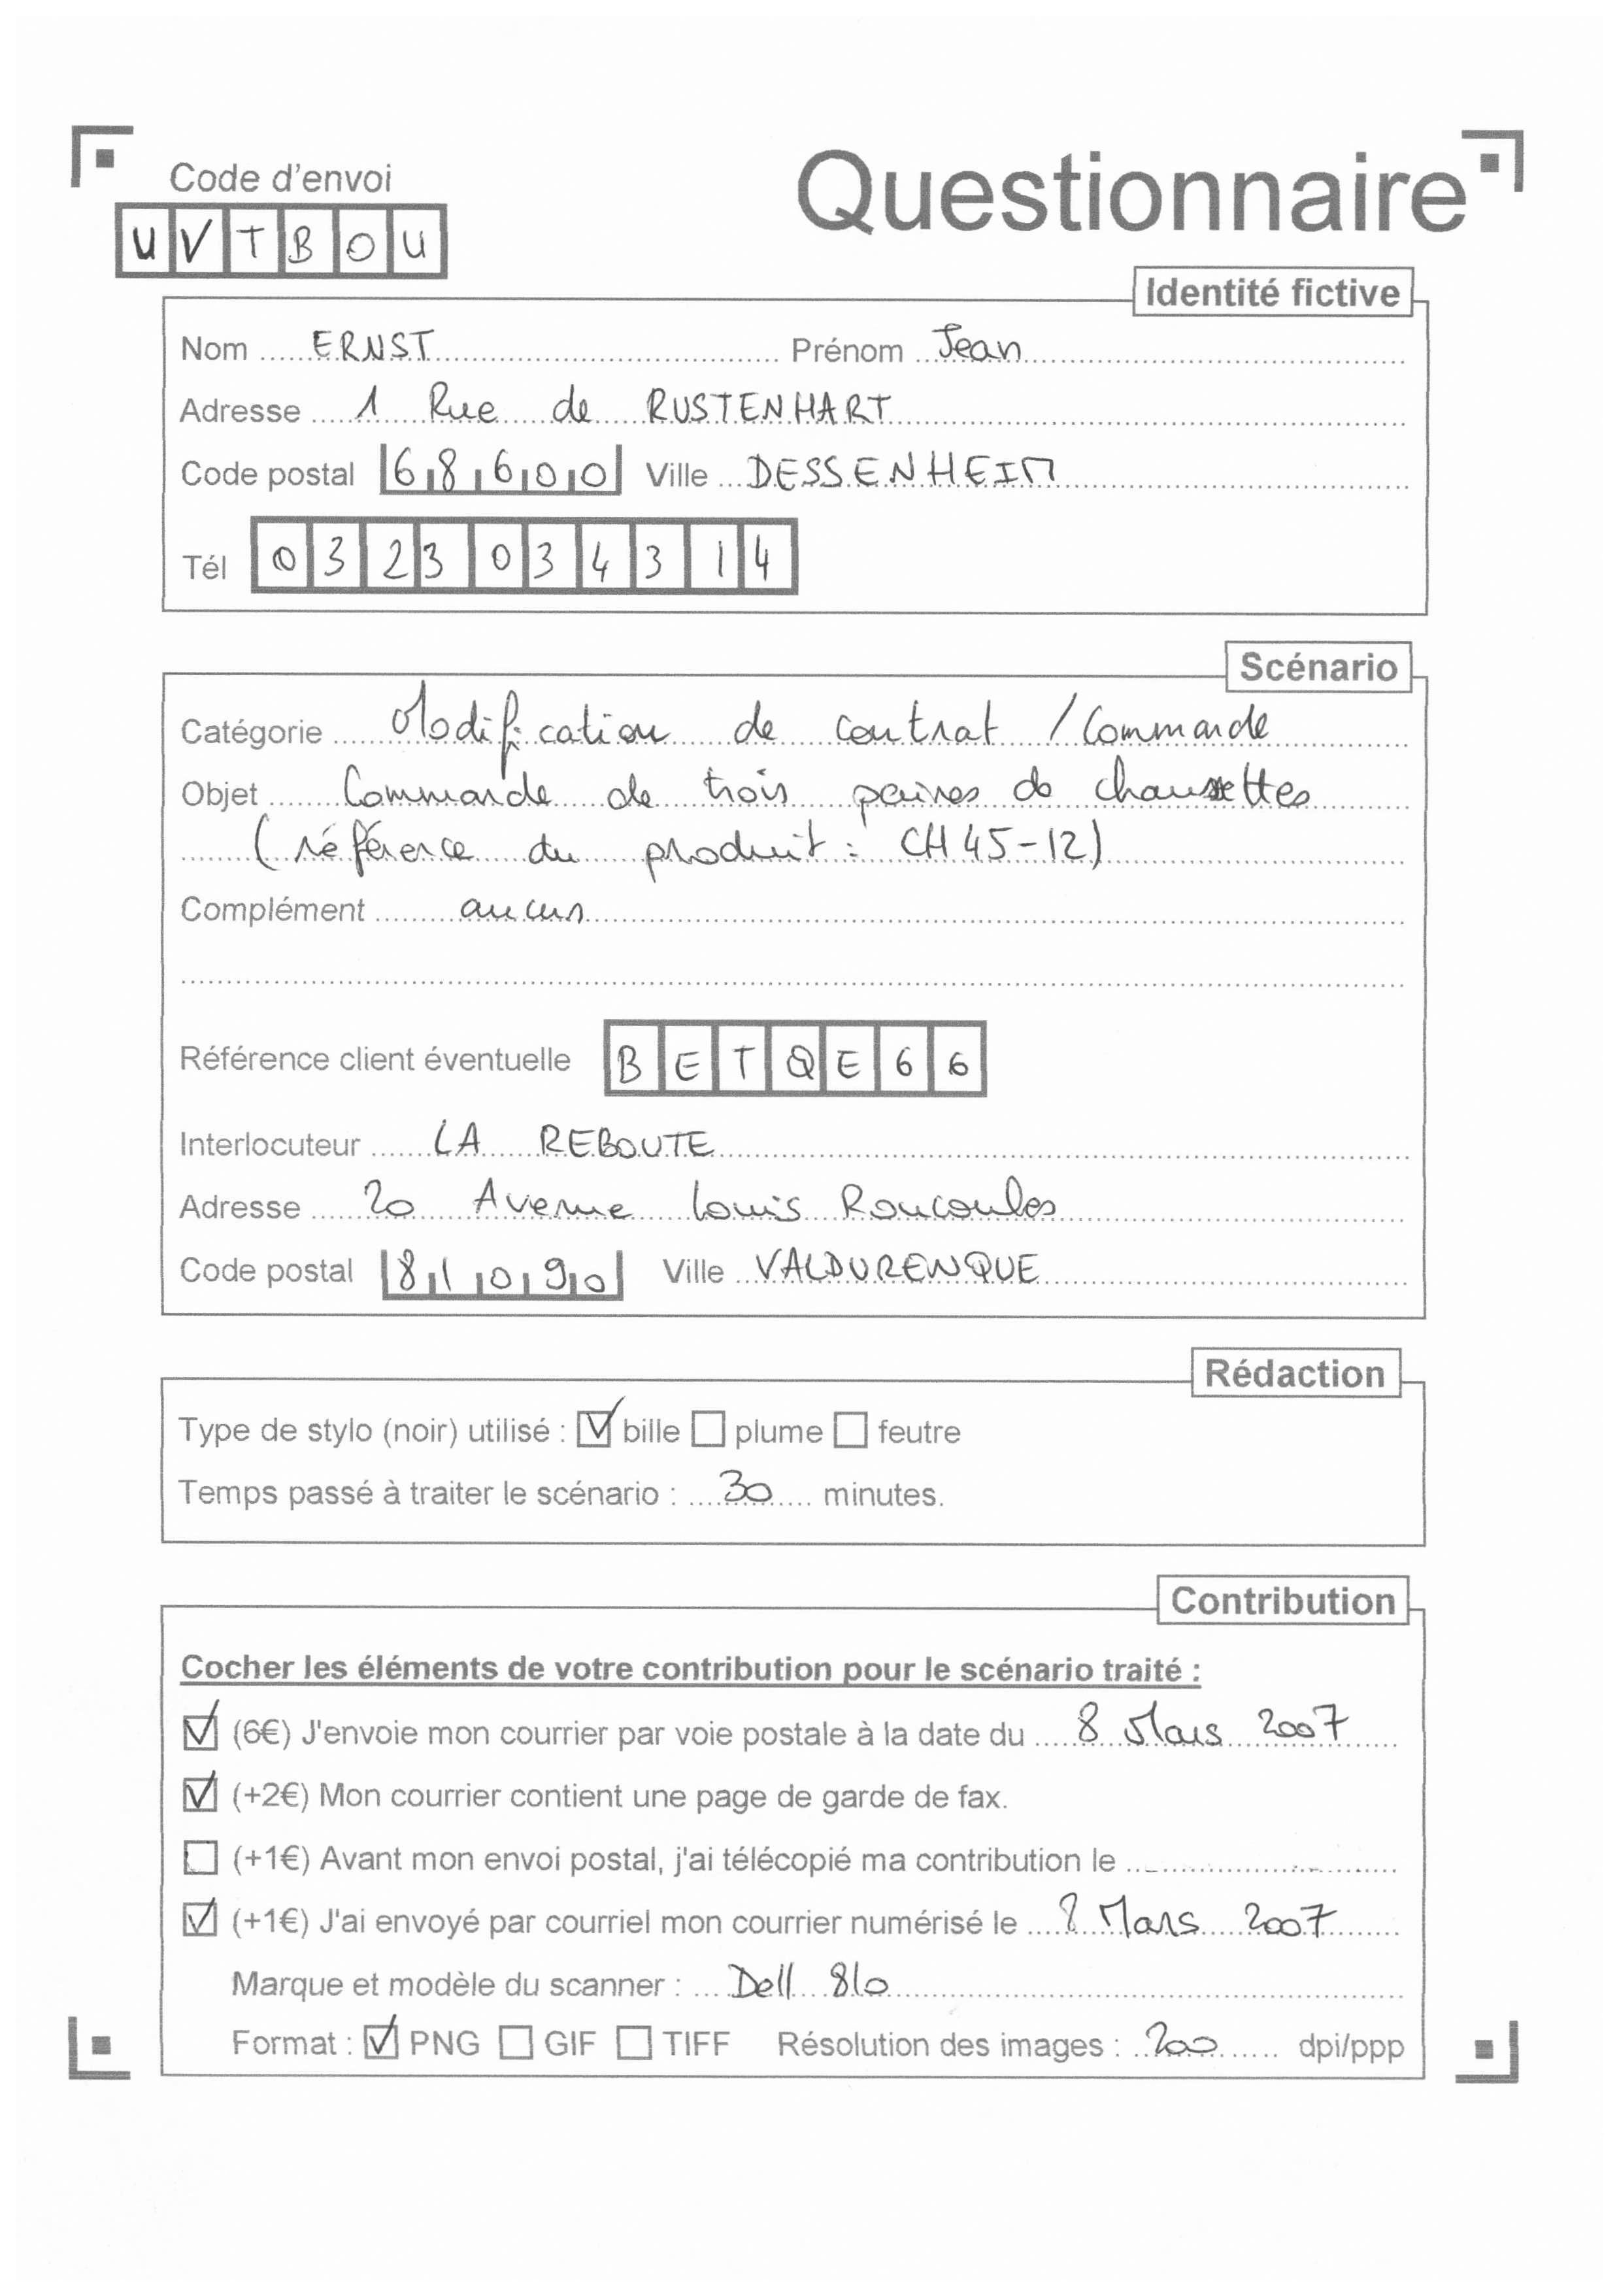 Code d'envoi
Questionnaire
UVTBOU
Identité fictive
Nom ERNST Prénom Jean
Adresse 1 Rue de RUSTENHART
Code postal 68600 Ville DESSENHEIM
Tél 0323034314
Scénario
Catégorie Modification de contrat / Commande
Objet Commande de trois paires de chaussettes
(référence du produit : CH45-12)
Complément aucun
Référence client éventuelle BETQE66
Interlocuteur LA REBOUTE
Adresse 20 Avenue Louis Roucoules
Code postal 81090 Ville VALDURENQUE
Rédaction
Type de stylo (noir) utilisé : ☑ bille ☐ plume ☐ feutre
Temps passé à traiter le scénario : 30 minutes.
Contribution
Cocher les éléments de votre contribution pour le scénario traité :
☑ (6€) J'envoie mon courrier par voie postale à la date du 8 Mars 2007
☑ (+2€) Mon courrier contient une page de garde de fax.
☐ (+1€) Avant mon envoi postal, j'ai télécopié ma contribution le
☑ (+1€) J'ai envoyé par courriel mon courrier numérisé le 8 Mars 2007
Marque et modèle du scanner : Dell 810
Format : ☑ PNG ☐ GIF ☐ TIFF Résolution des images : 200 dpi/ppp